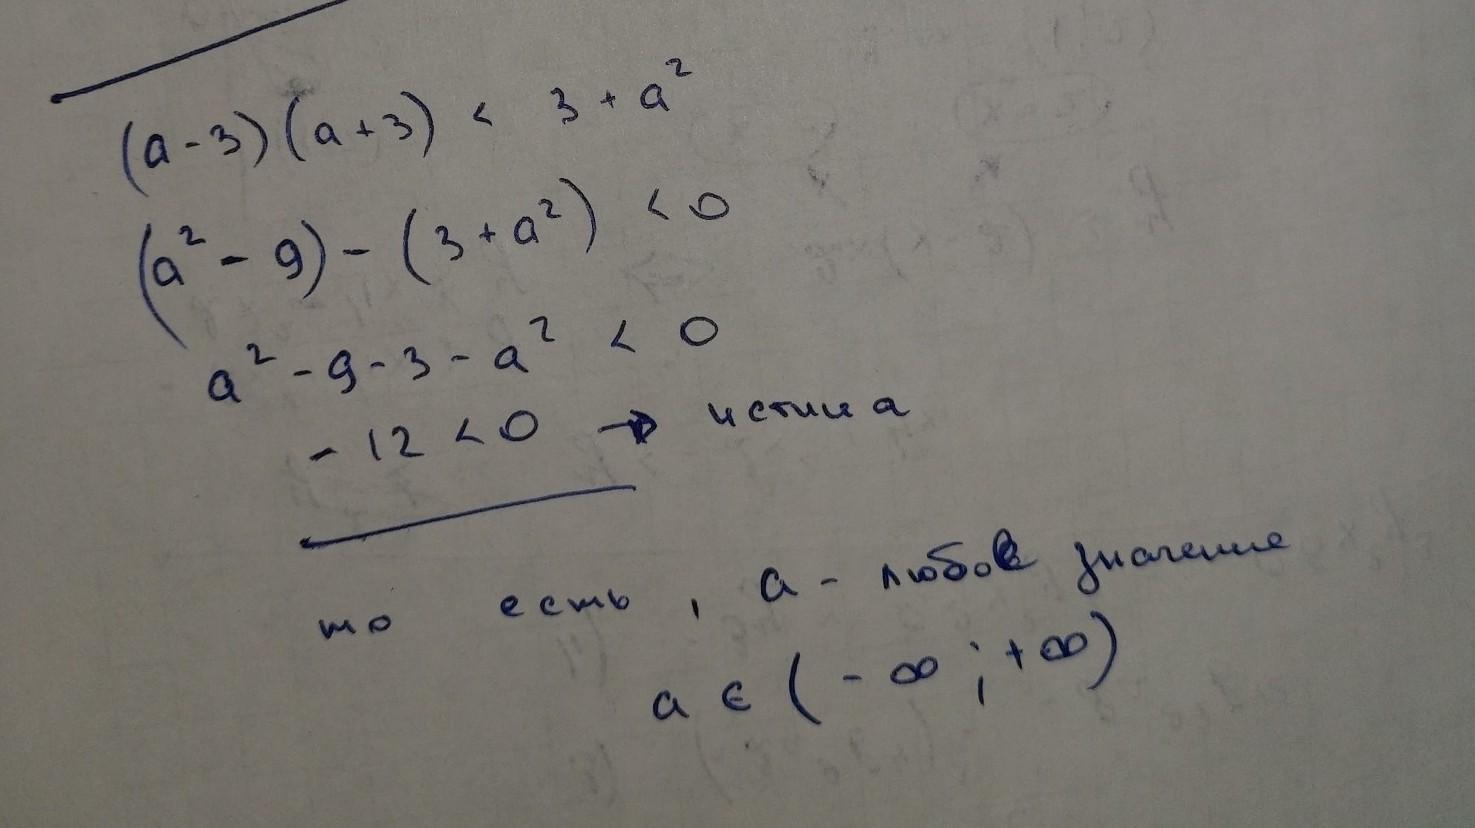 (a-3)(a+3) < 3 + a²
(a² - 9) - (3 + a²) < 0
a² - 9 - 3 - a² < 0
- 12 < 0 → истина
то есть, a - любое значение
a ∈ (- ∞ ; +∞)